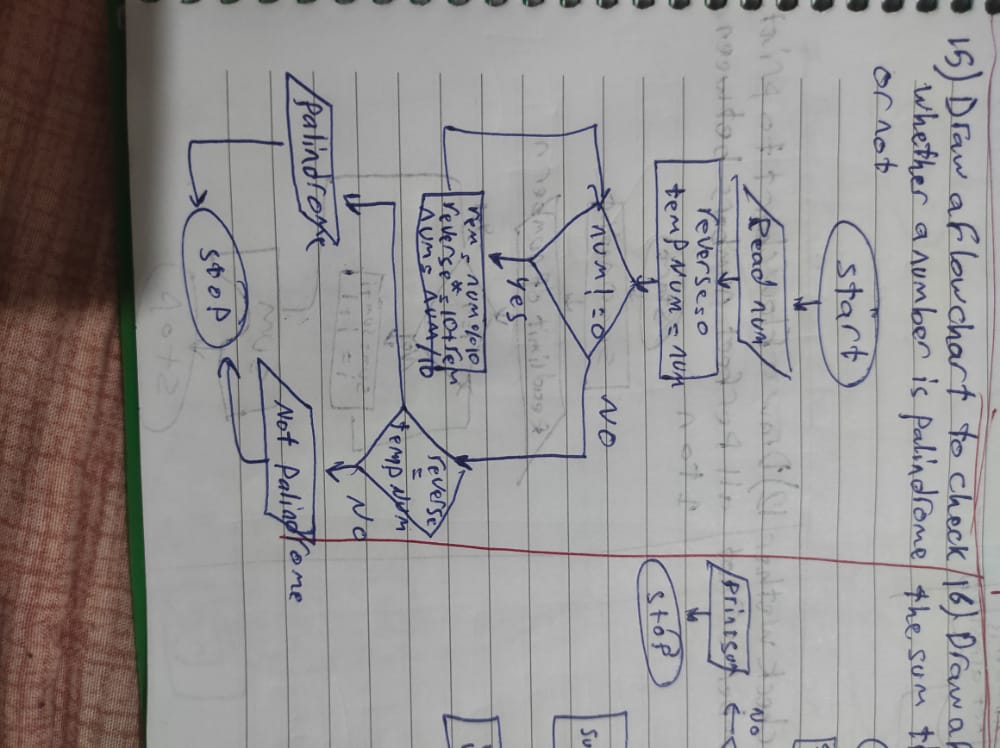 15) Draw a flowchart to check
whether a number is palindrome
or not
start
Read num
reverse=0
tempNum = num
num! =0
NO
Yes
rem = num%10
reverse* =10+rem
num = num/10
reverse
=
temp Num
NO
Palindrome
Not palindrome
stop
16) Draw a
the sum
print sum
NO
stop